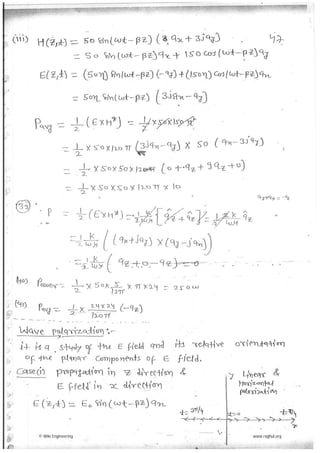 (iii) H(z,t) = 50 sin(wt - βz) (a̶ ax + 3jay)
47
= 50 sin(wt-βz)ax + 150 cos(wt-βz)ay
E(z,t) = (50η) sin(wt-βz) (-ay) + (150η) cos(wt-βz)ax
= 50η sin(wt-βz) (3jax - ay)
Pavg = 1/2 (E×H*) =
= 1/2 × 50×120π (3jax - ay) × 50 (ax - 3jay)
= 1/2 × 50×50×120π (0 + az + 9az + 0)
= 1/2 × 50×50×120π × 10
(39) P = 1/2 (E×H*) =
= 1/2 k/wμ ( (ax + jay) × (ay - jax) )
= 1/2 k/wμ ( az + 0 - az) = 0
(40) Power = 1/2 × 50 × 5/12π × π × 24 = 250W
(41) Pavg = 1/2 × 24×24/120π (-az)
Wave polarization :-
it is a study of the E field and its relative orientation
of the planar components of E field.
Case(i) propagation in z direction &
E field in x direction
E(z,t) = E0 sin(wt-βz) ax
y Linear &
Horizontal
polarization
t=0
x
© Wiki Engineering
www.raghul.org